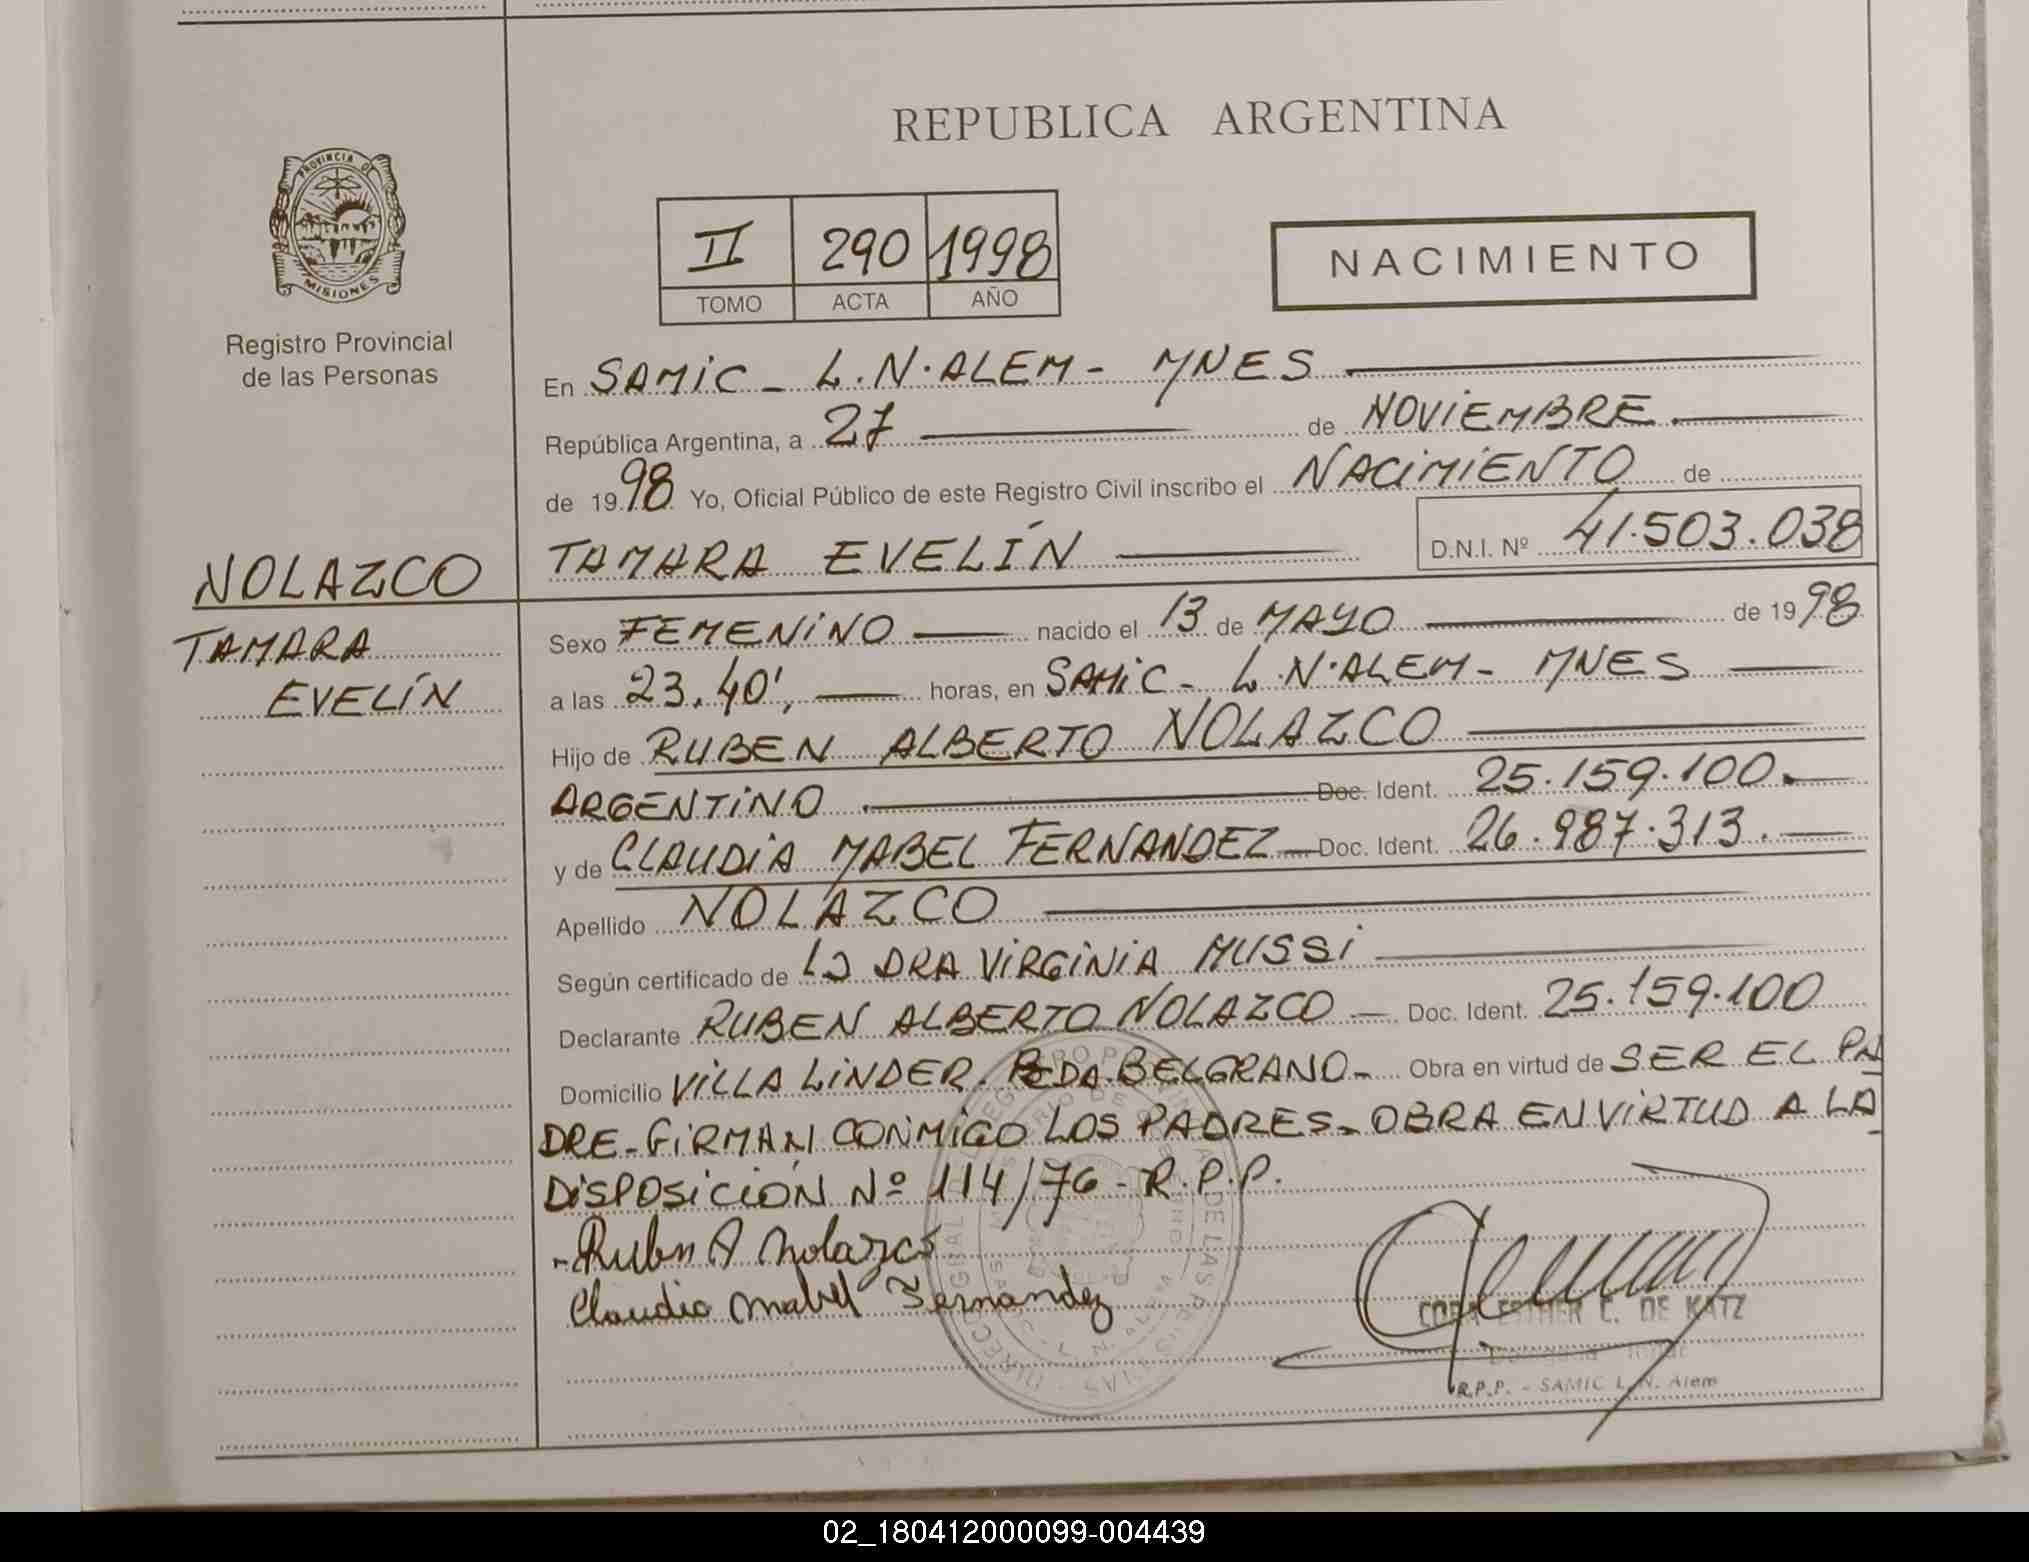 REPUBLICA ARGENTINA
PROVINCIA DE
MISIONES
Registro Provincial
de las Personas
II 290 1998
TOMO ACTA AÑO
NACIMIENTO
En SAMIC - L.N.ALEM - MNES
República Argentina, a 27 de NOVIEMBRE
de 1998 Yo, Oficial Público de este Registro Civil inscribo el NACIMIENTO de
TAMARA EVELÍN D.N.I. Nº 41.503.038
NOLAZCO
TAMARA
EVELÍN
Sexo FEMENINO nacido el 13 de MAYO de 1998
a las 23.40', horas, en SAMIC - L.N.ALEM - MNES
Hijo de RUBEN ALBERTO NOLAZCO
ARGENTINO Doc. Ident. 25.159.100.
y de CLAUDIA MABEL FERNANDEZ Doc. Ident. 26.987.313.
Apellido NOLAZCO
Según certificado de LA DRA VIRGINIA MUSSI
Declarante RUBEN ALBERTO NOLAZCO Doc. Ident. 25.159.100
Domicilio VILLA LINDER. BELGRANO - Obra en virtud de SER EL PA
DRE - FIRMAN CONMIGO LOS PADRES - OBRA EN VIRTUD A LA
DISPOSICIÓN Nº 114/76 - R.P.P.
Ruben A Nolazco
Claudia Mabel Fernandez
ESTHER C. DE KATZ
R.P.P. - SAMIC L.N. Alem
02_180412000099-004439